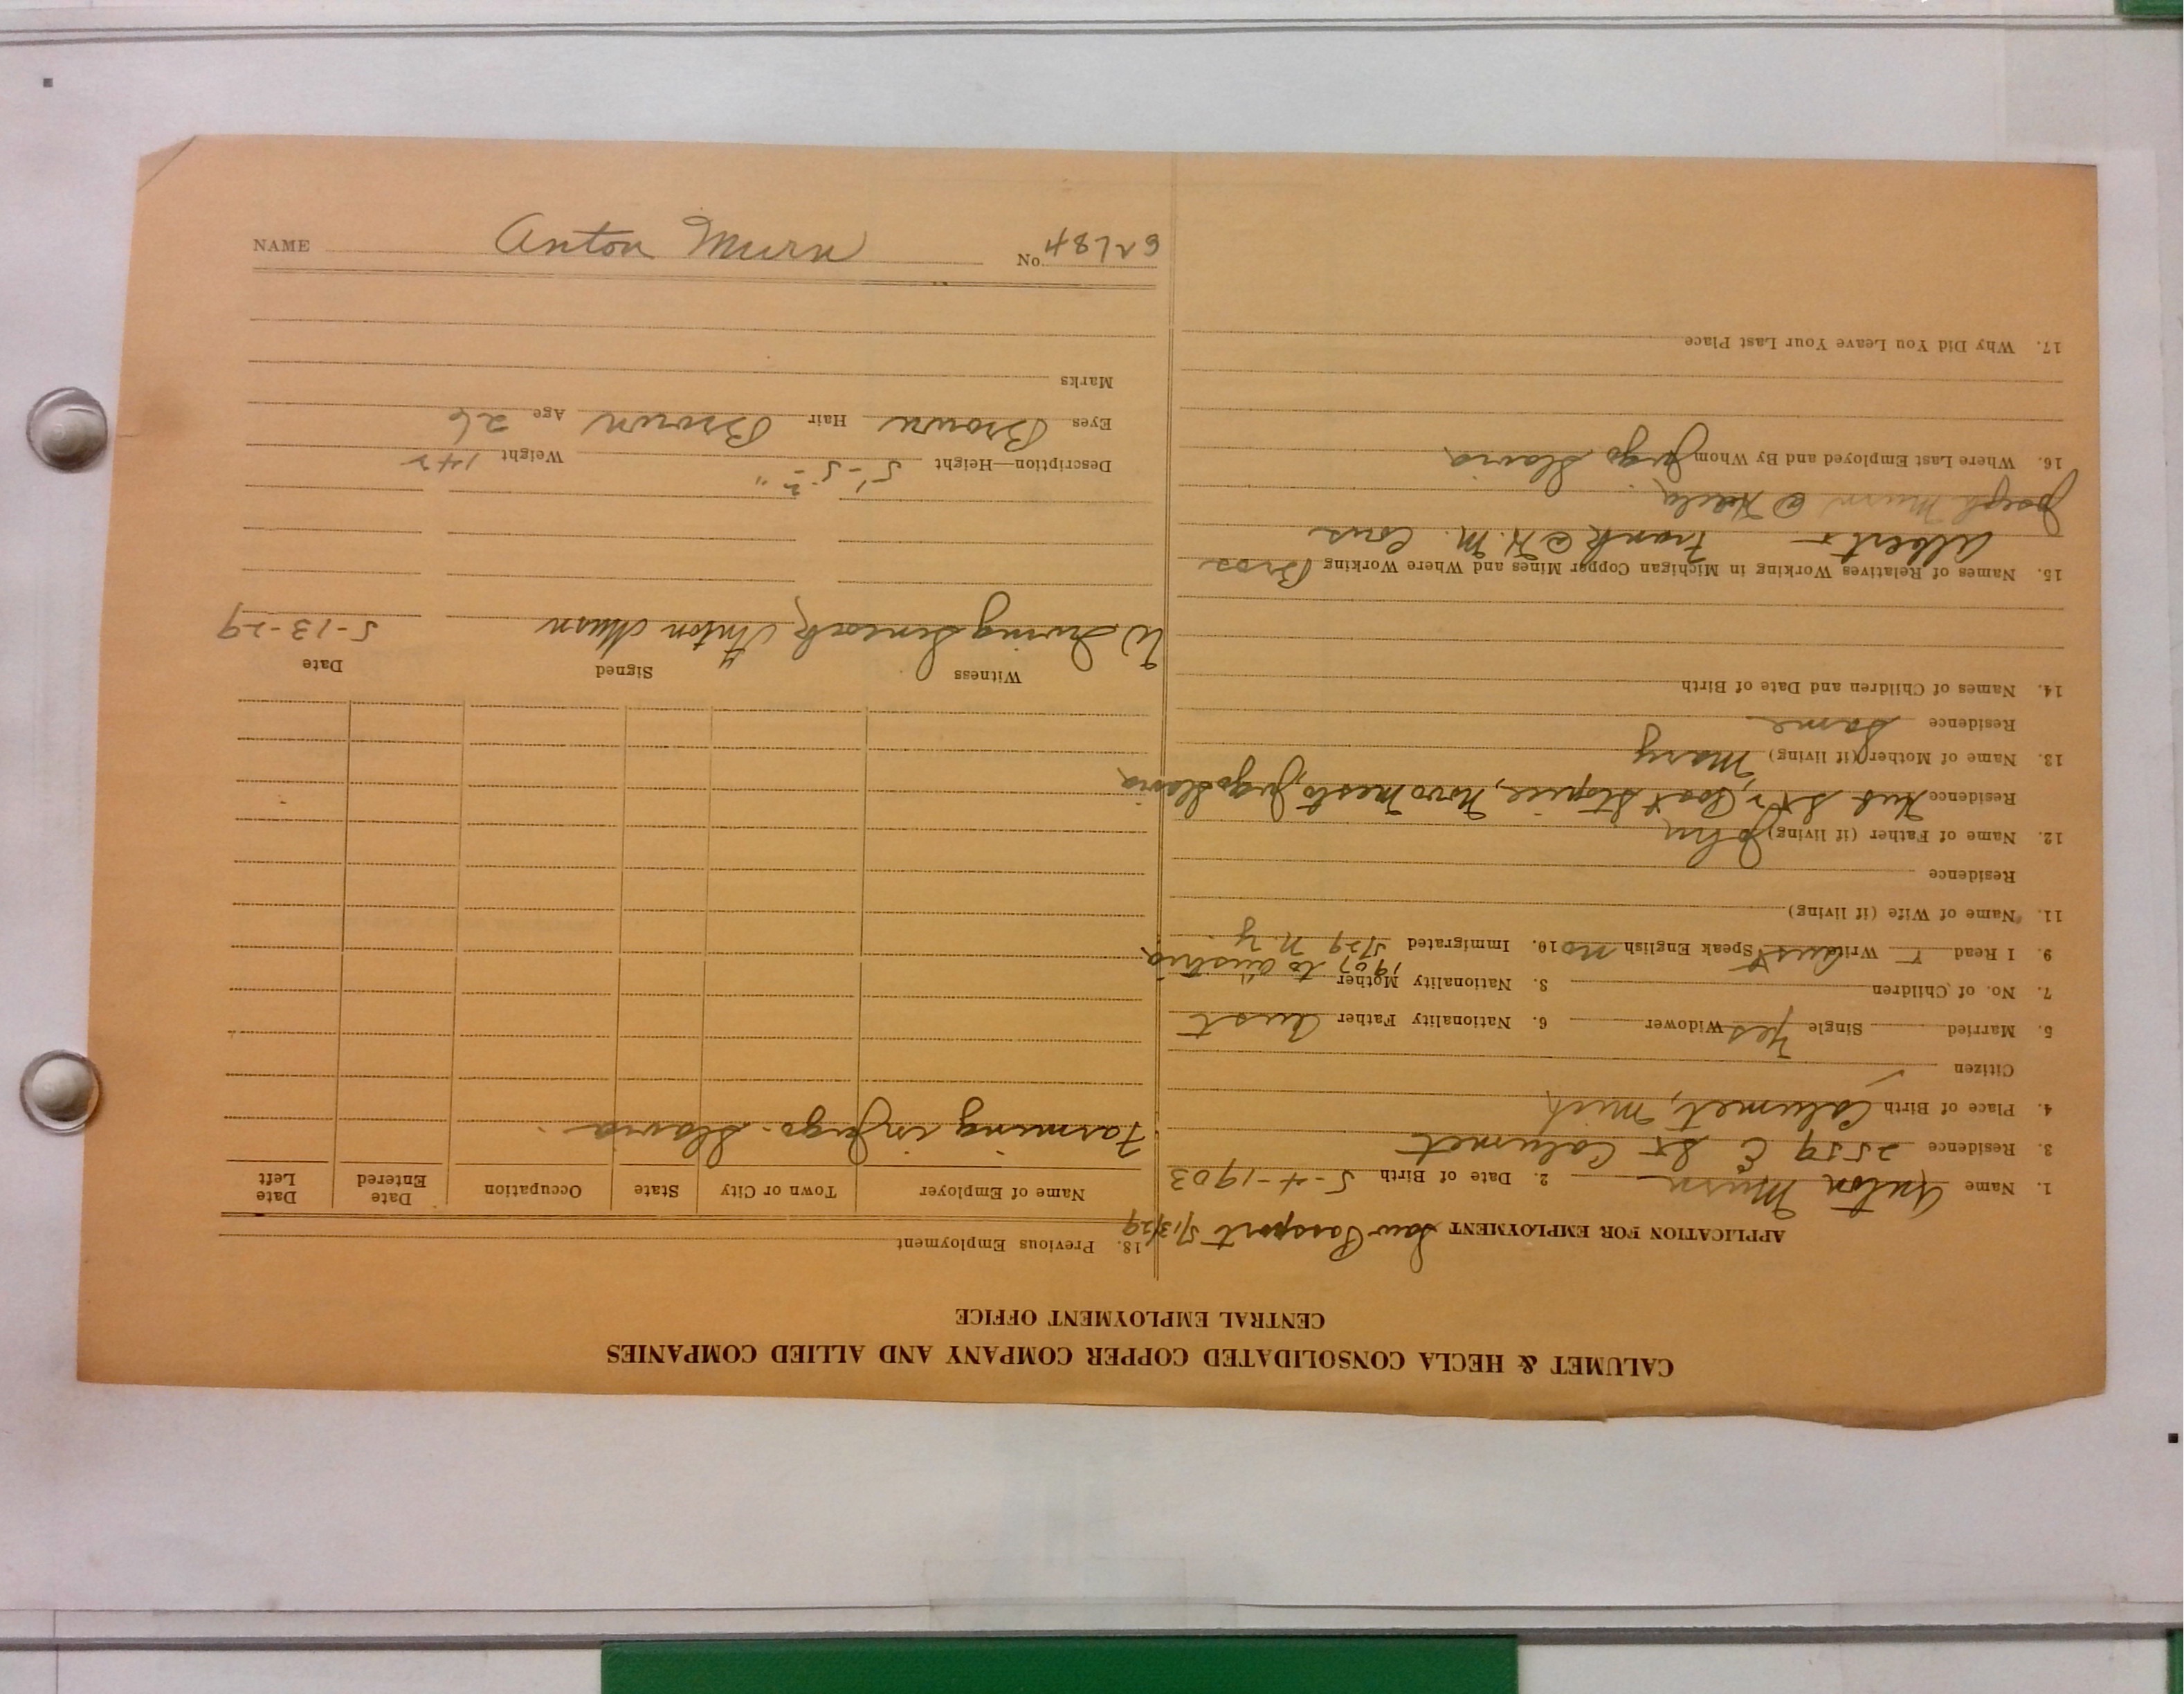 CALUMET & HECLA CONSOLIDATED COPPER COMPANY AND ALLIED COMPANIES
CENTRAL EMPLOYMENT OFFICE
APPLICATION FOR EMPLOYMENT Saw Passport 5/13/29
1. Name Anton Murn 2. Date of Birth 5-4-1903
3. Residence 2559 C St Calumet
4. Place of Birth Calumet, Mich
Citizen
5. Married Single Yes Widower 6. Nationality Father Aust
7. No. of Children 8. Nationality Mother
1907 to Austria
9. I Read Write Aust Speak English no 10. Immigrated 5/29 N.Y
11. Name of Wife (if living)
Residence
12. Name of Father (if living) John
Residence Stopice, Novo Mesto, Jugo Slavia
13. Name of Mother (if living) Mary
Residence Same
14. Names of Children and Date of Birth
15. Names of Relatives Working in Michigan Copper Mines and Where Working Bros
Albert Frank @ N. M. Cons
Joseph Murn @ Hecla
16. Where Last Employed and By Whom Jugo Slavia
17. Why Did You Leave Your Last Place
18. Previous Employment
Name of Employer Town or City State Occupation Date Entered Date Left
Farming in Jugo-Slavia
Witness Signed Date
W Irving Anton Murn 5-13-29
Description—Height 5'-5 Weight 142
Eyes Brown Hair Brown Age 26
Marks
NAME Anton Murn No.